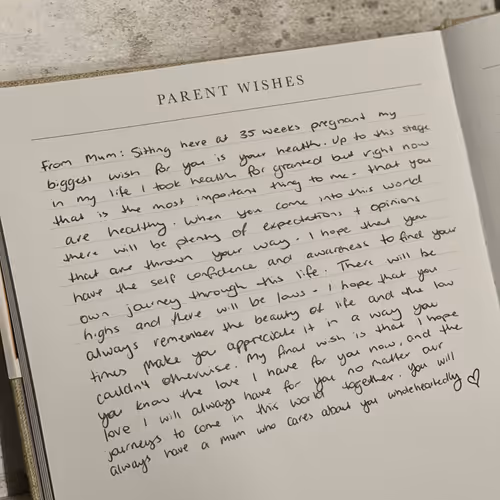 PARENT WISHES
From Mum: Sitting here at 35 weeks pregnant my
biggest wish for you is your health. Up to this stage
in my life I took health for granted but right now
that is the most important thing to me - that you
are healthy. When you come into this world
there will be plenty of expectations + opinions
that are thrown your way. I hope that you
have the self confidence and awareness to find your
own journey through this life. There will be
highs and there will be lows - I hope that you
always remember the beauty of life and the low
times make you appreciate it in a way you
couldn't otherwise. My final wish is that I hope
you know the love I have for you now, and the
love I will always have for you no matter our
journeys to come in this world together. You will
always have a mum who cares about you wholeheartedly ♡